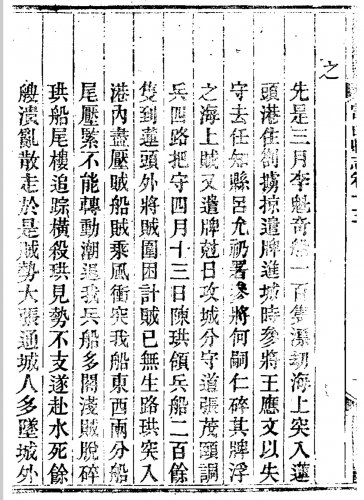 之
先是三月李魁奇船一百隻瀑劫海上突入蓮
頭港住劄擄掠遣牌進城時參將王應文以失
守去任知縣呂允礽署參將何嗣仁碎其牌浮
之海上賊又遣牌尅日攻城分守道張茂頤調
兵四路把守四月十三日陳珙領兵船二百餘
隻到蓮頭外將賊圍困計賊已無生路珙突入
港內盡壓賊船賊乘風衝突我船東西兩分船
尾壓緊不能轉動潮退我兵船多閣淺賊脫碎
珙船尾樓追踪橫殺珙見勢不支遂赴水死餘
艘潰亂散走於是賊勢大張通城人多墜城外